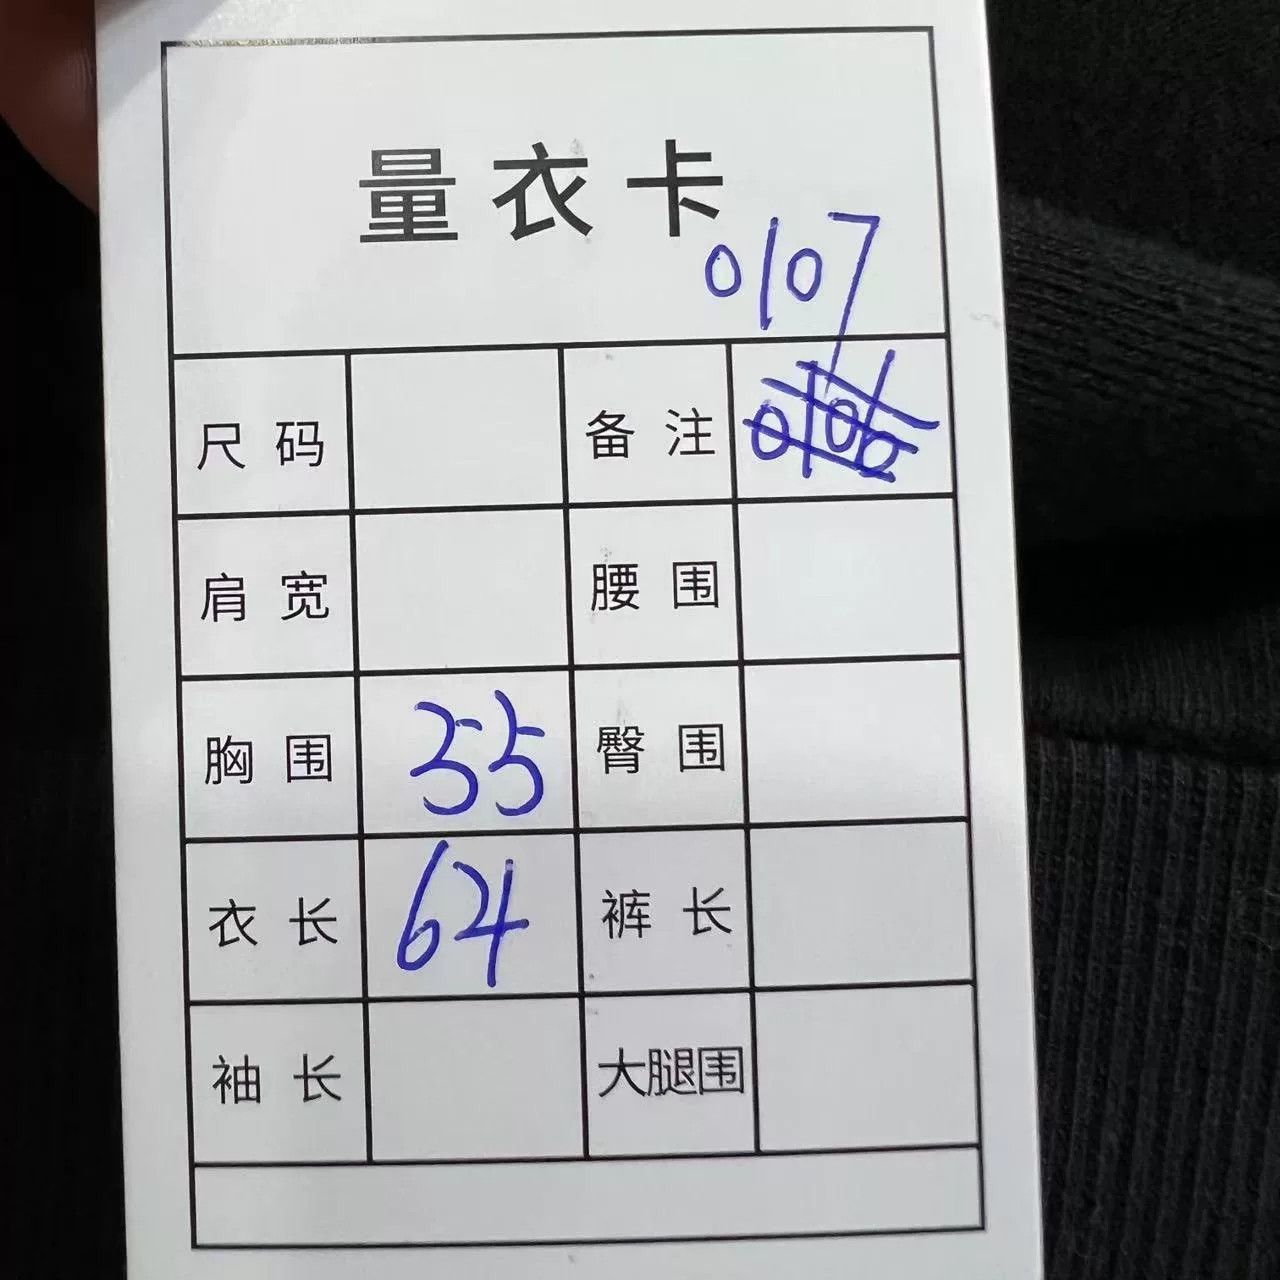 量衣卡
0107
尺码 备注 0106
肩宽 腰围
胸围 55 臀围
衣长 64 裤长
袖长 大腿围